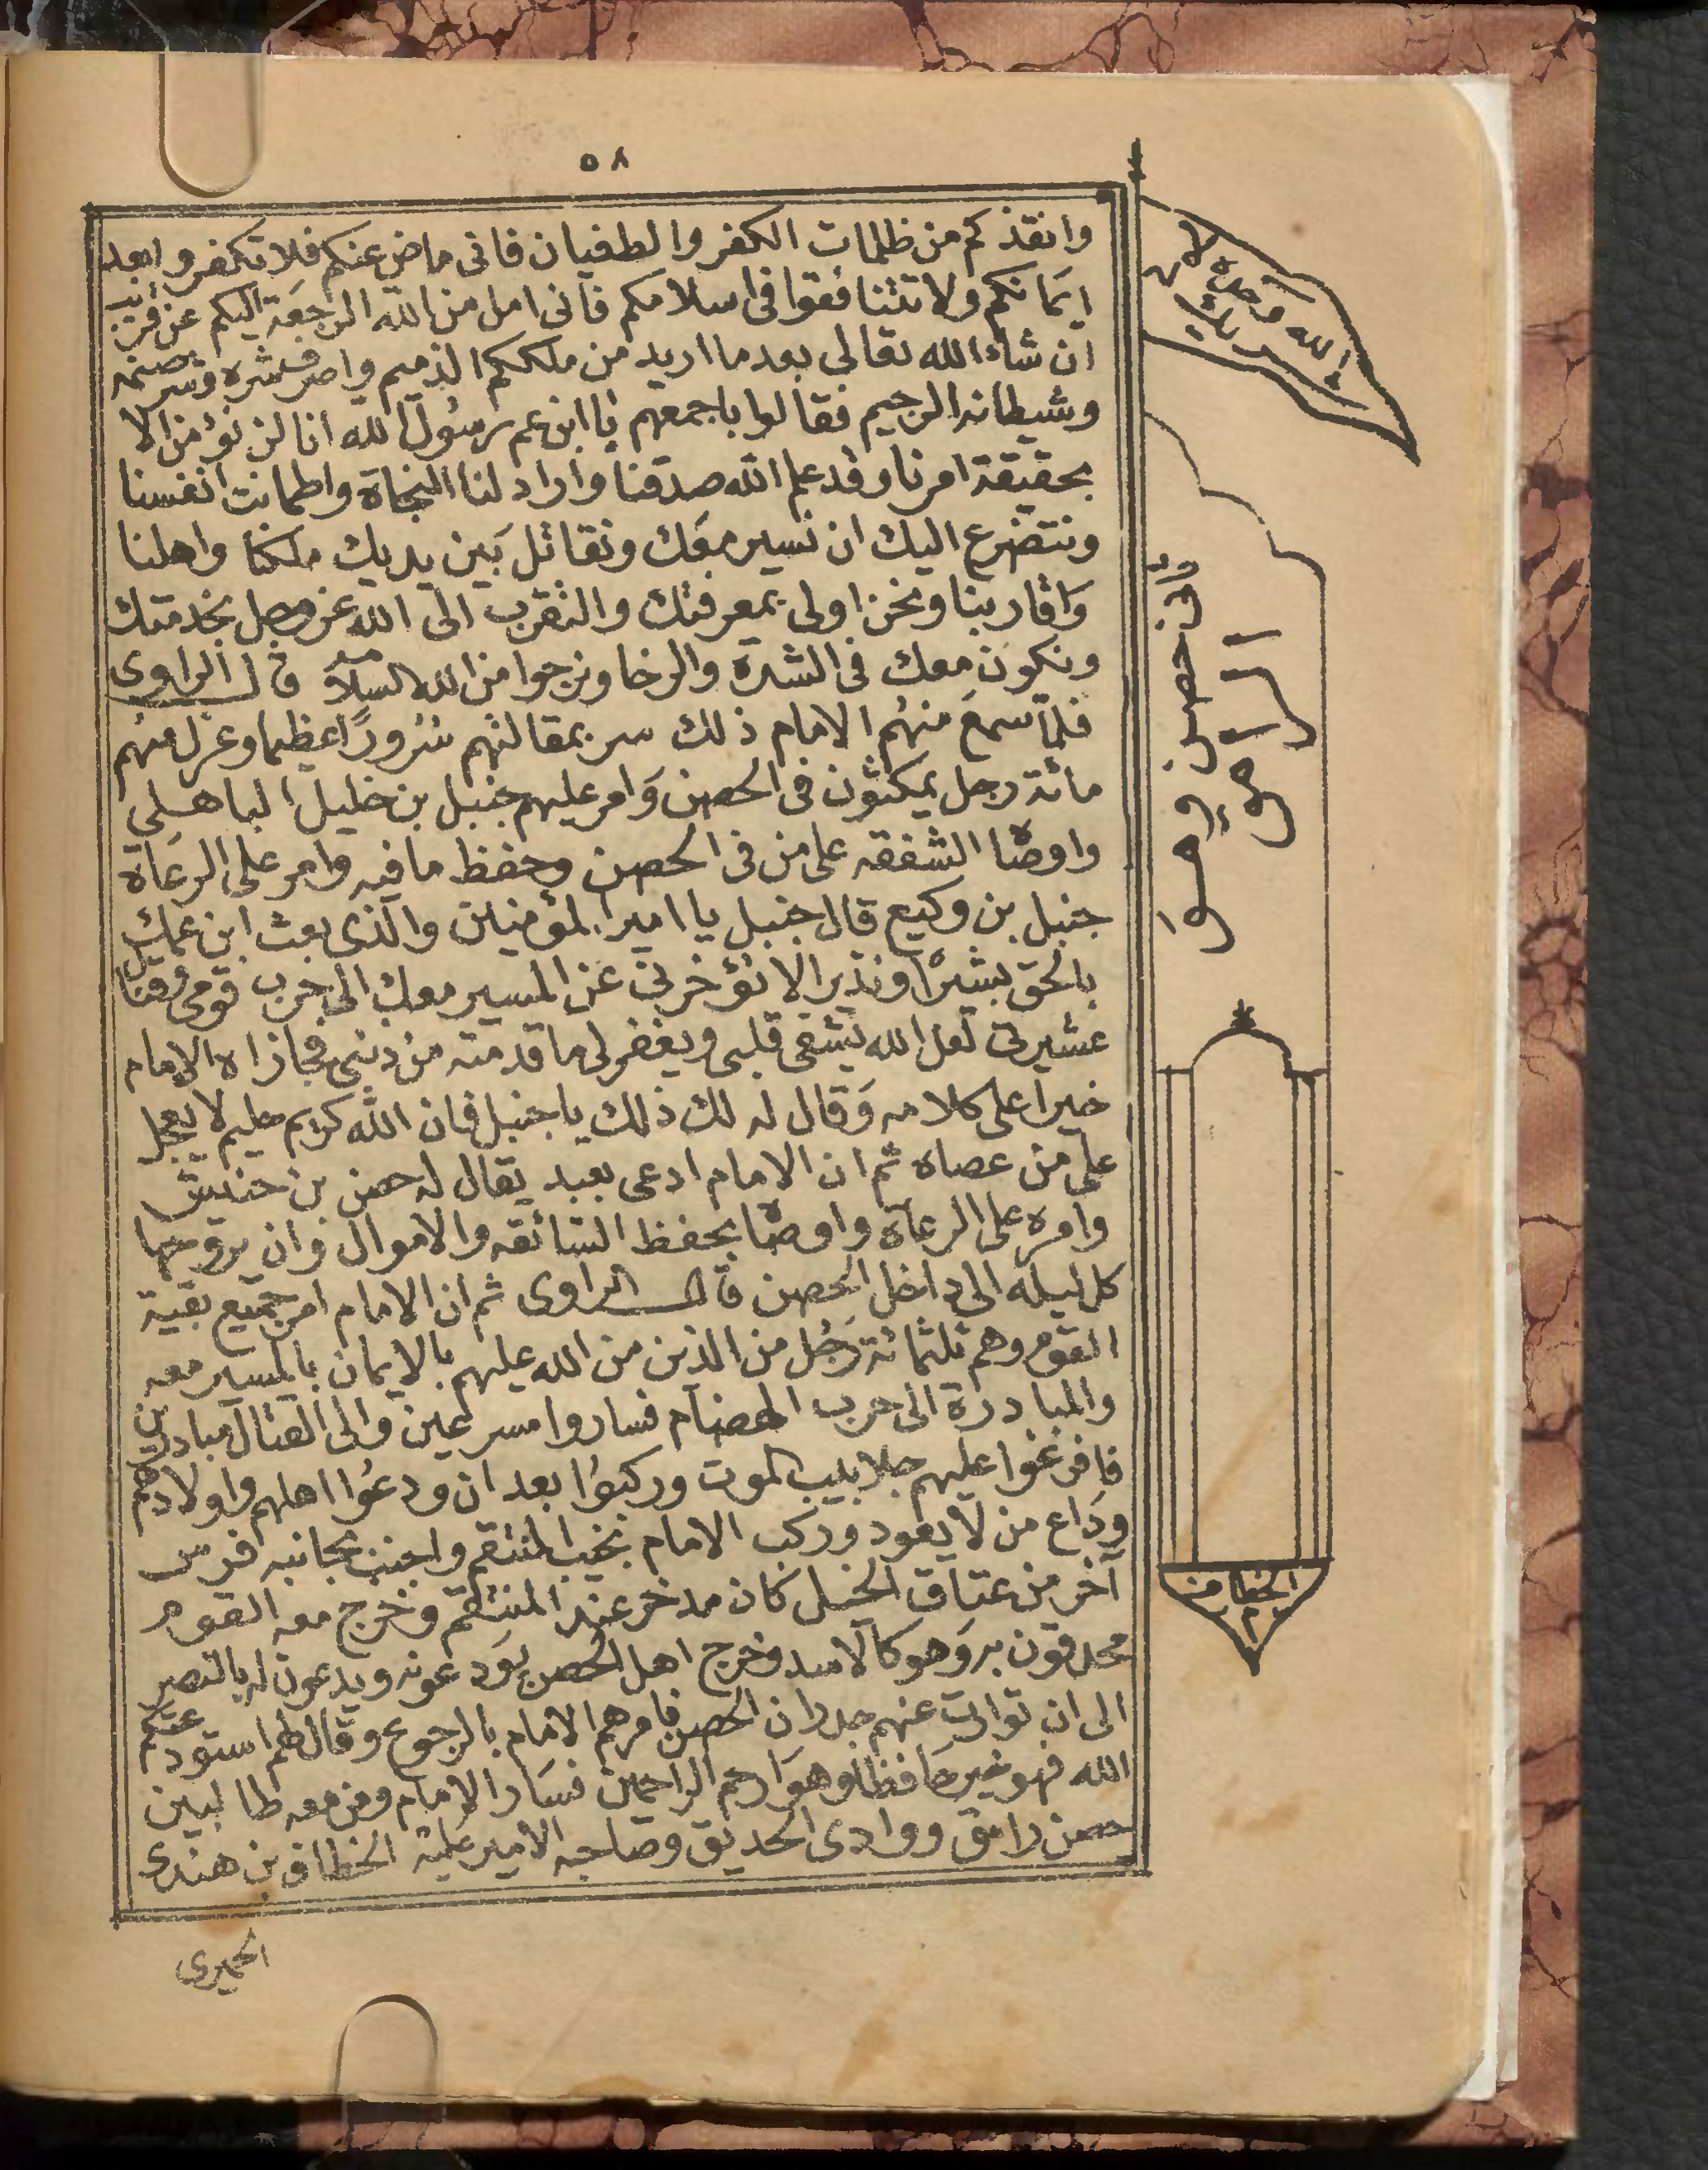 ٥٨
وانقذكم من ظلمات الكفر والطغيان فانى ماض عنكم فلا تكفروا بعد
ايمانكم ولا تتنافقوا فى اسلامكم فانى امل من الله الرجعة اليكم عن قريب
ان شاء الله تعالى بعد ما اريد من ملككم الذميم واصرف شره وشر صنمه
وشيطانه الرجيم فقالوا باجمعهم يا ابن عم رسول الله انا لن نؤمن الا
بحقيقة امرنا وقد علم الله صدقنا واراد لنا النجاة واطمانت انفسنا
ونتضرع اليك ان نسير معك ونقاتل بين يديك ملكنا واهلنا
واقاربنا ونحن اولى بمعرفتك والتقرب الى الله عز وجل بخدمتك
ونكون معك فى الشدة والرخا ونرجوا من الله السلامه قال الراوى
فلما سمع منهم الامام ذلك سر بمقالتهم سرورًا عظيما وعزل منهم
مائة رجل يمكثون فى الحصن وامر عليهم جنبل بن خليل الباهلي
واوصاه الشفقه على من فى الحصن وحفظ ما فيه وامر على الرعاة
جنبل بن وكيع قال جنبل يا امير المؤمنين والذى بعث ابن عمك
بالحق بشيرًا ونذيرا لا تؤخرنى عن المسير معك الى حرب قومى وفنا
عشيرتى لعل الله يشفى قلبى ويغفر لى ما قدمته من دنبى فجازاه الامام
خيرا على كلامه وقال له لك ذلك يا جنبل فان الله كريم حليم لا يعجل
على من عصاه ثم ان الامام ادعى بعبد يقال له حصن بن حنديش
وامره على الرعاة واوصاه بحفظ السائقه والاموال وان يروحها
كل ليله الى داخل الحصن قال الراوى ثم ان الامام امر جميع بقية
القوم وهم ثلثمائة رجُل من الذين من الله عليهم بالايمان بالمسير معه
والمبادرة الى حرب الهضام فساروا مسرعين والى القتال مبادرين
فافرغوا عليهم جلابيب الموت وركبوا بعد ان ودعُوا اهلهم واولادهم
وداع من لا يعود وركب الامام نجيب المنتقم واجنب بجانبه فرس
آخر من عتاق الخيل كان مدخر عند المنتقم وخرج معه القوم
محدقون به وهو كالاسد وخرج اهل الحصن يودعونه ويدعون له بالنصر
الى ان توارت عنهم جدران الحصن فامرهم الامام بالرجوع وقال لهم استودعتكم
الله فهو خير حافظا وهو ارحم الراحمين فسار الامام ومن معه طالبين
حصن رامق ووادى الحديق وصاحبه الامير عليه الخطاف بن هندى
الحميرى
الله وحده لا
شريك
حصن وهو
الرامق
الخطاف